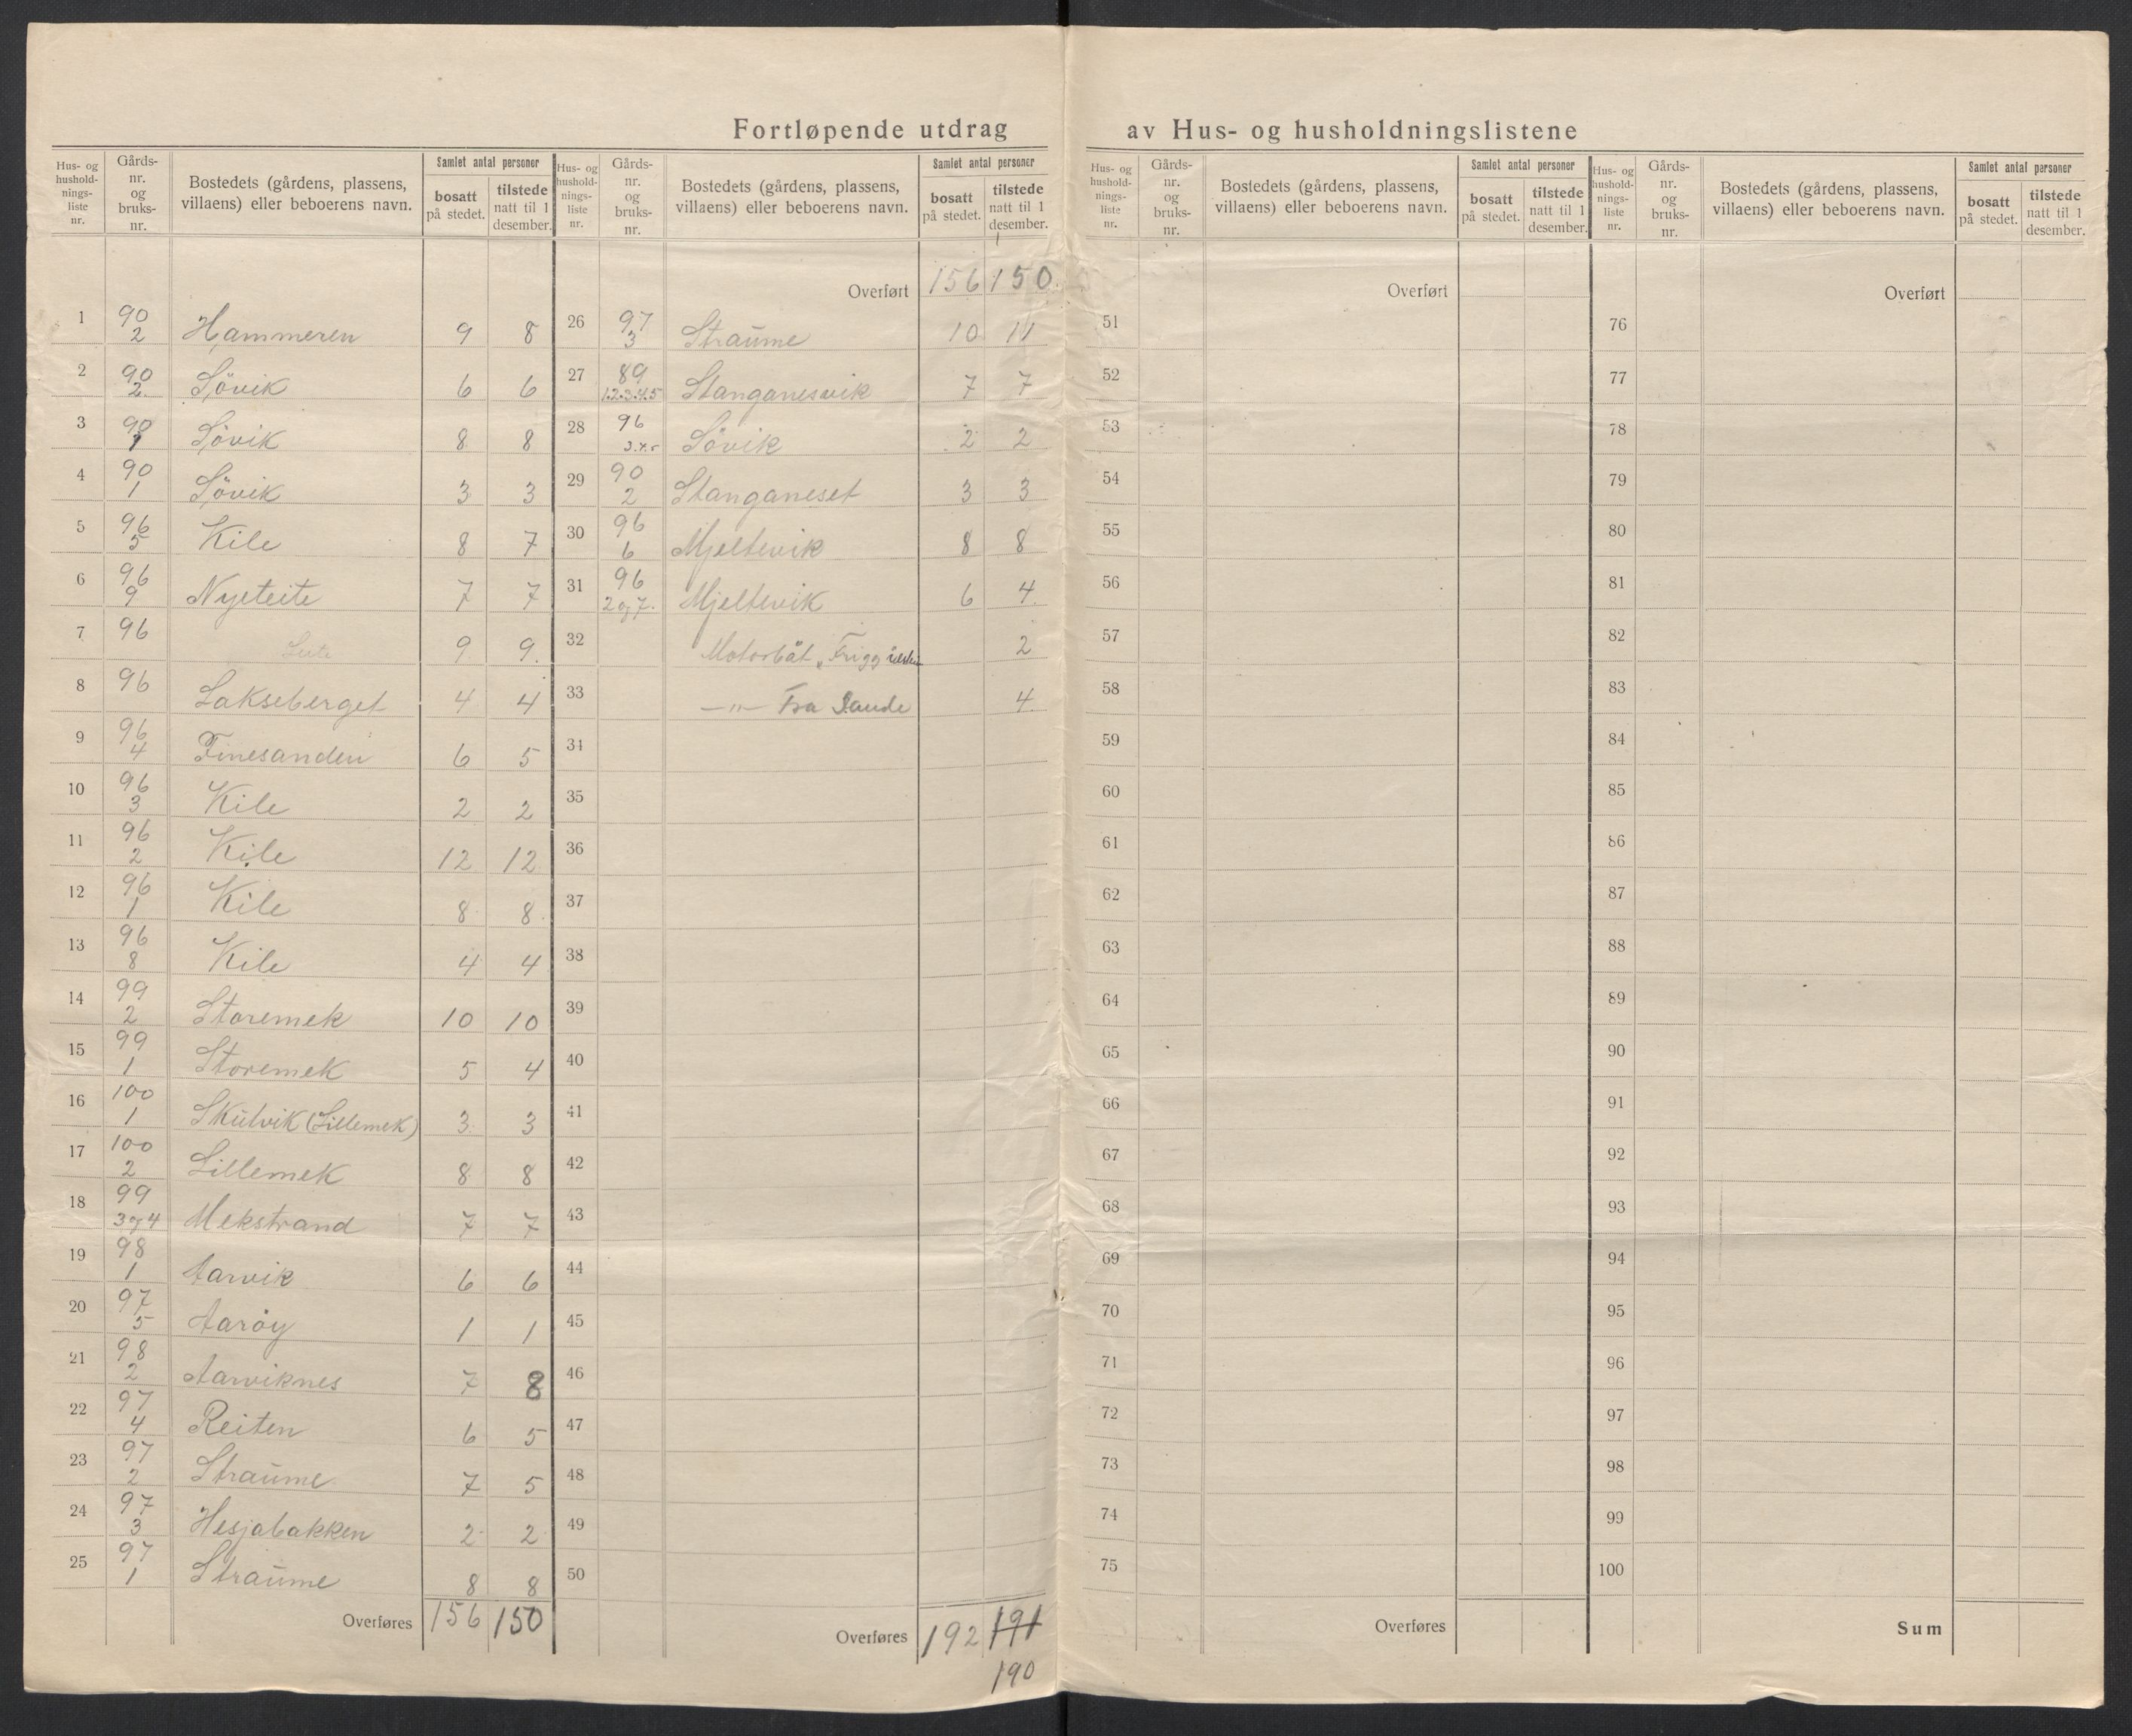 Fortløpende utdrag av Hus- og husholdningslistene
Hus- og husholdningsliste nr. Gårdsnr. og bruksnr. Bostedets (gårdens, plassens, villaens) eller beboerens navn. Samlet antal personer bosatt på stedet. tilstede natt til 1 desember.
1 90 2 Hammeren 9 8
2 90 2. Sövik 6 6
3 90 1 Sövik 8 8
4 90 1 Sövik 3 3
5 96 5 Kile 8 7
6 96 9 Nyeteite 7 7
7 96 9 9.
8 96 Lakseberget 4 4
9 96 4 Finesanden 6 5
10 96 3 Kile 2 2
11 96 2 Kile 12 12
12 96 1 Kile 8 8
13 96 8 Kile 4 4
14 99 2 Storemek 10 10
15 99 1 Storemek 5 4
16 100 1 Skülvik (Lillemek) 3 3
17 100 2 Lillemek 8 8
18 99 3 og 4 Mekstrand 7 7
19 98 1 Aarvik 6 6
20 97 5 Aaröy 1 1
21 98 2 Aarviknes 7 8
22 97 4 Reiten 6 5
23 97 2 Straüme 7 5
24 97 3 Hesjabakken 2 2
25 97 1 Straüme 8 8
Overføres 156 150
Hus- og husholdningsliste nr. Gårdsnr. og bruksnr. Bostedets (gårdens, plassens, villaens) eller beboerens navn. Samlet antal personer bosatt på stedet. tilstede natt til 1 desember.
Overført 156 150
26 97 3 Straüme 10 11
27 89 1.2.3.4.5 Stanganesvik 7 7
28 96 3.4.5 Sövik 2 2
29 90 2 Stanganeset 3 3
30 96 6 Mjeltevik 8 8
31 96 2 og 7. Mjeltevik 6 4
32 Motorbåt „Frigg 2
33 —"— Fra Sande 4
34
35
36
37
38
39
40
41
42
43
44
45
46
47
48
49
50
Overføres 192 191
190
Hus- og husholdningsliste nr. Gårdsnr. og bruksnr. Bostedets (gårdens, plassens, villaens) eller beboerens navn. Samlet antal personer bosatt på stedet. tilstede natt til 1 desember.
Overført
51
52
53
54
55
56
57
58
59
60
61
62
63
64
65
66
67
68
69
70
71
72
73
74
75
Overføres
Hus- og husholdningsliste nr. Gårdsnr. og bruksnr. Bostedets (gårdens, plassens, villaens) eller beboerens navn. Samlet antal personer bosatt på stedet. tilstede natt til 1 desember.
Overført
76
77
78
79
80
81
82
83
84
85
86
87
88
89
90
91
92
93
94
95
96
97
98
99
100
Sum